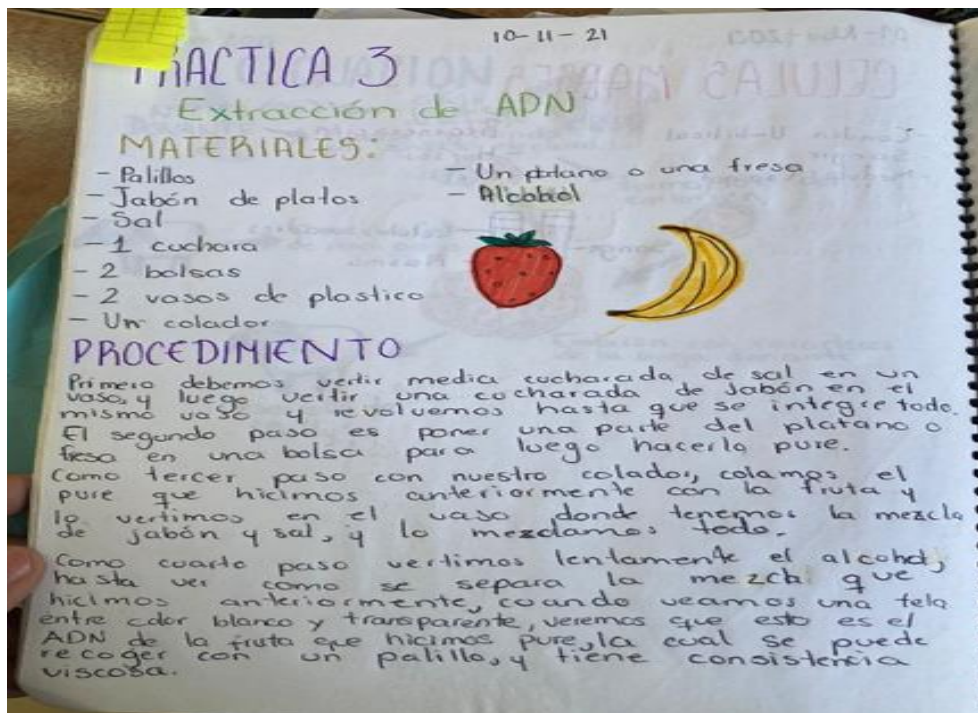 10-11-21
PRACTICA 3
Extracción de ADN
MATERIALES:
- Palillos
- Jabón de platos
- Sal
- 1 cuchara
- 2 bolsas
- 2 vasos de plastico
- Un colador
- Un platano o una fresa
- Alcohol
PROCEDIMIENTO
Primero debemos vertir media cucharada de sal en un
vaso, y luego vertir una cucharada de Jabón en el
mismo vaso y revolvemos hasta que se integre todo.
El segundo paso es poner una parte del platano o
fresa en una bolsa para luego hacerlo pure.
Como tercer paso con nuestro colador, colamos el
pure que hicimos anteriormente con la fruta y
lo vertimos en el vaso donde tenemos la mezcla
de jabón y sal, y lo mezclamos todo.
Como cuarto paso vertimos lentamente el alcohol,
hasta ver como se separa la mezcla que
hicimos anteriormente, cuando veamos una tela
entre color blanco y transparente, veremos que esto es el
ADN de la fruta que hicimos pure, la cual se puede
recoger con un palillo, y tiene consistencia
viscosa.